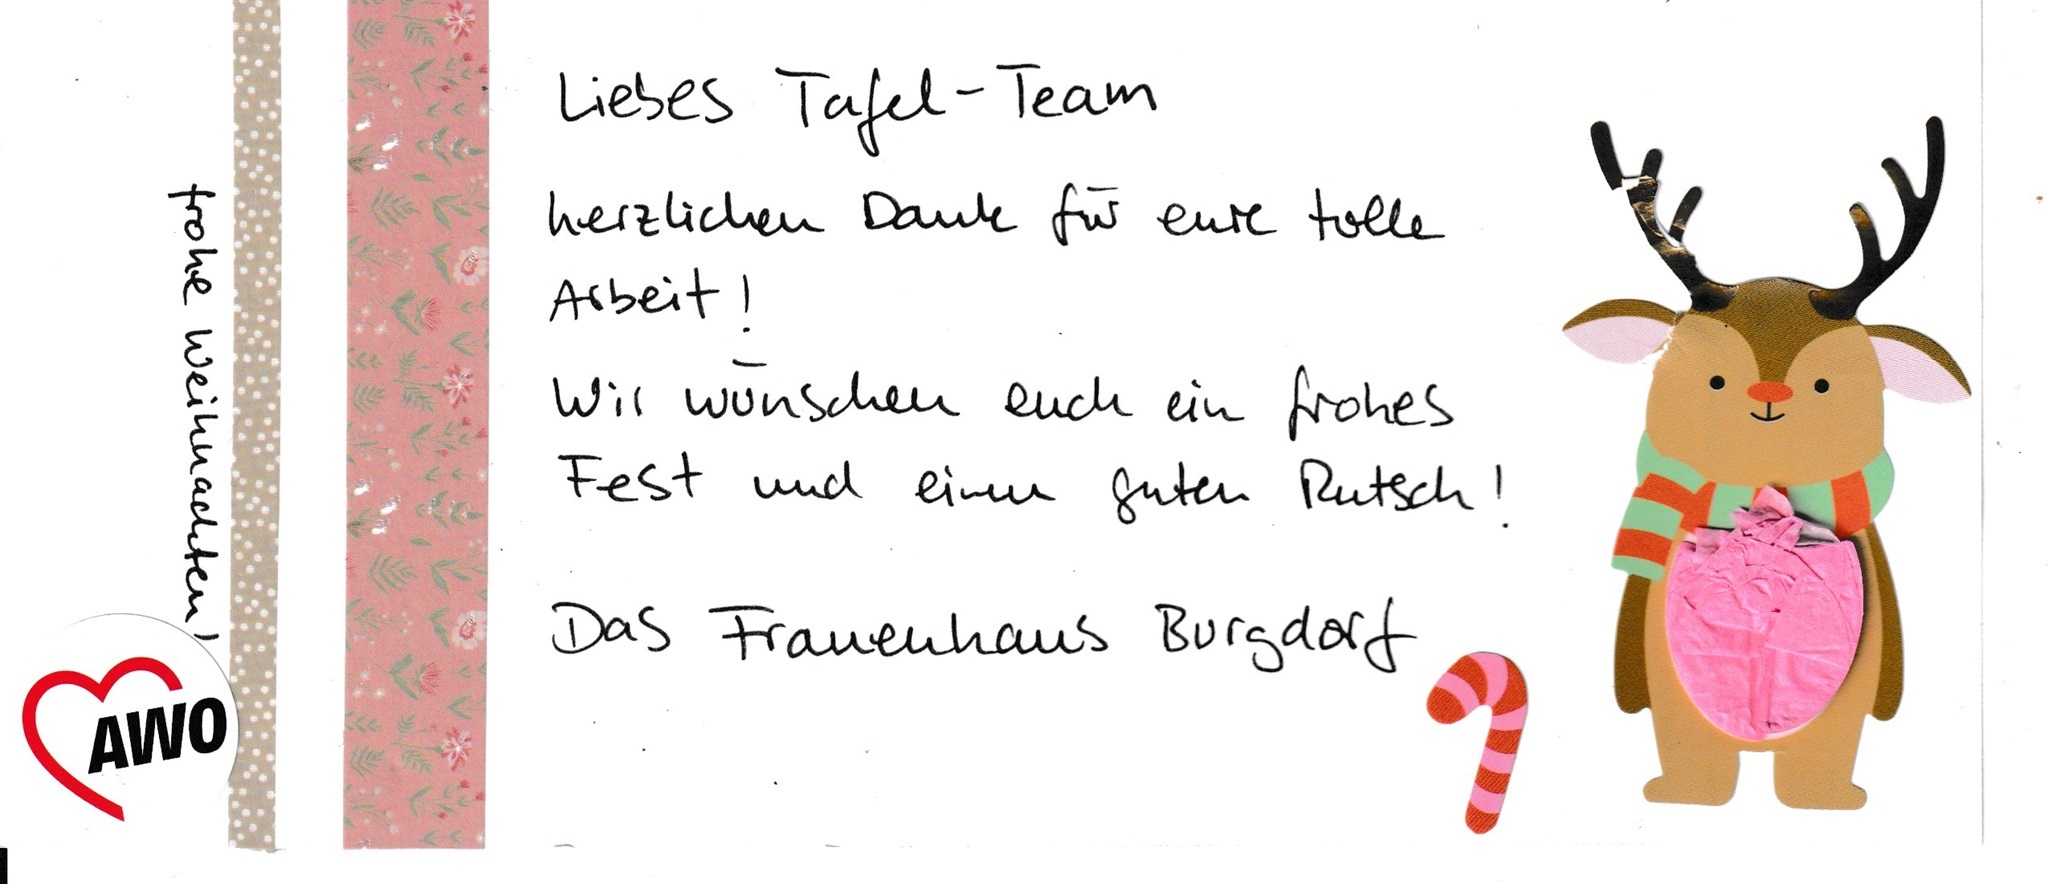 Liebes Tafel-Team
herzlichen Dank für eure tolle
Arbeit!
Wir wünschen euch ein frohes
Fest und einen guten Rutsch!
Das Frauenhaus Burgdorf
frohe Weihnachten!
AWO